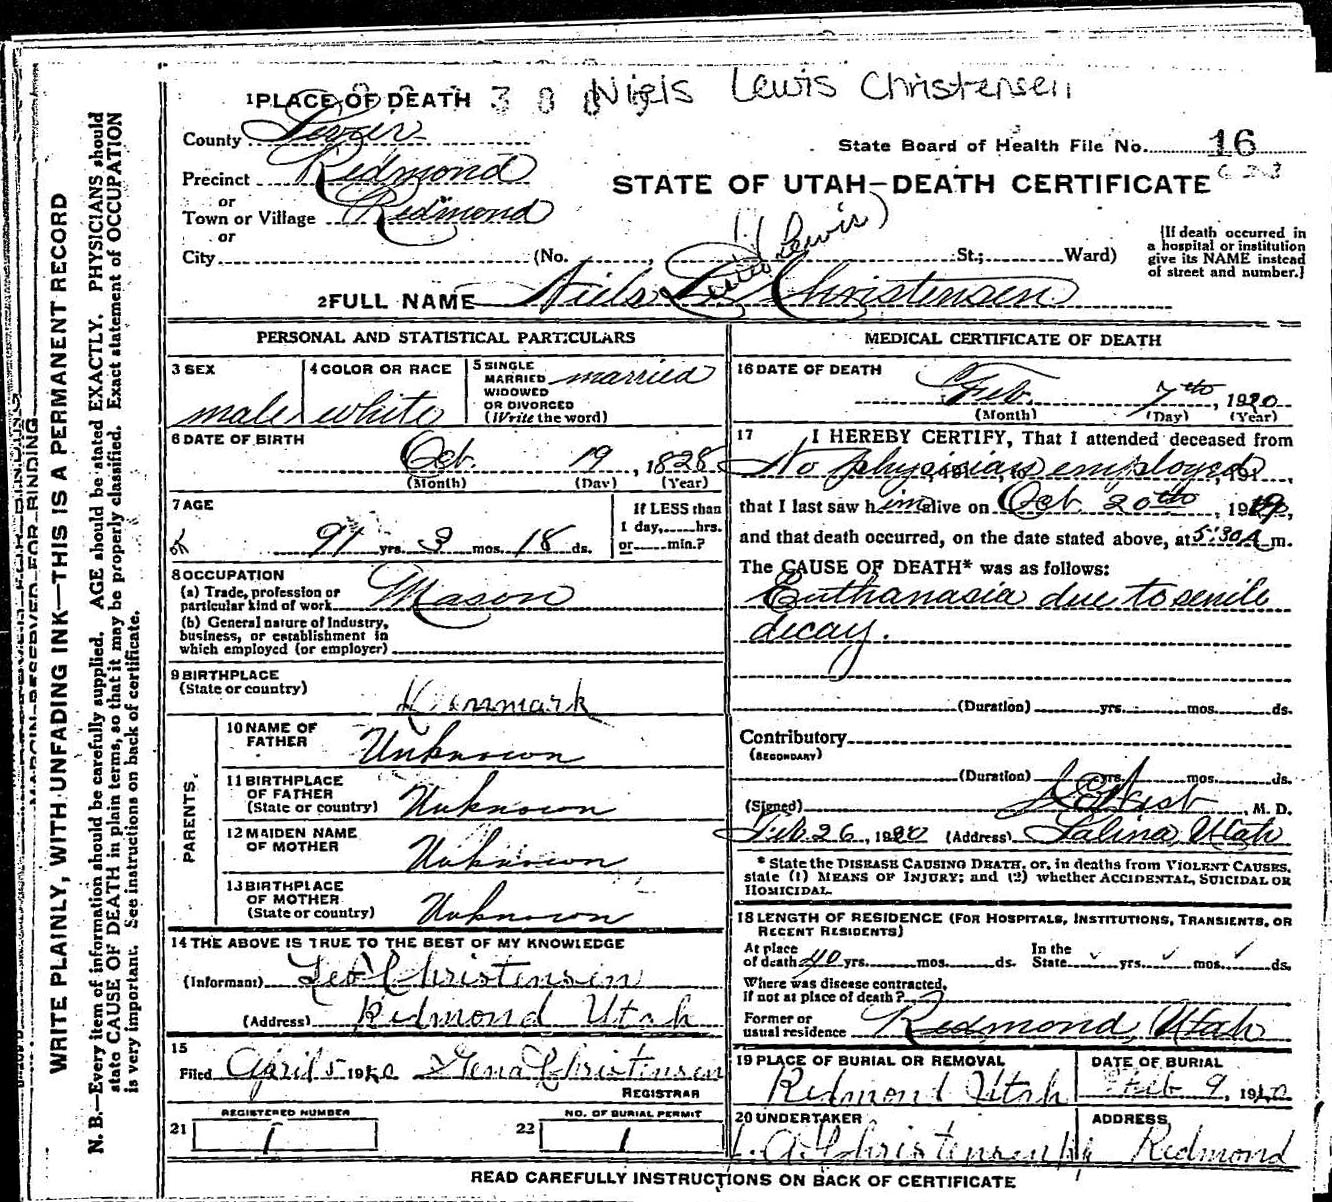 Niels Lewis Christensen
1 PLACE OF DEATH
County Sevier
State Board of Health File No. 16
Precinct Redmond
STATE OF UTAH—DEATH CERTIFICATE
or
Town or Village Redmond
or
City (No. St.; Ward)
(Lewis)
[If death occurred in
a hospital or institution
give its NAME instead
of street and number.]
2 FULL NAME Niels Christensen
PERSONAL AND STATISTICAL PARTICULARS
3 SEX
male
4 COLOR OR RACE
white
5 SINGLE
MARRIED
WIDOWED
OR DIVORCED
(Write the word)
married
6 DATE OF BIRTH
Oct. 19, 1828
(Month) (Day) (Year)
7 AGE
91 yrs. 3 mos. 18 ds.
If LESS than
1 day, hrs.
or min.?
8 OCCUPATION
(a) Trade, profession or
particular kind of work Mason
(b) General nature of Industry,
business, or establishment in
which employed (or employer)
9 BIRTHPLACE
(State or country)
Denmark
PARENTS.
10 NAME OF
FATHER
Unknown
11 BIRTHPLACE
OF FATHER
(State or country) Unknown
12 MAIDEN NAME
OF MOTHER
Unknown
13 BIRTHPLACE
OF MOTHER
(State or country) Unknown
14 THE ABOVE IS TRUE TO THE BEST OF MY KNOWLEDGE
(Informant) Leo Christensen
(Address) Redmond Utah
15
Filed April 5 1920 Gena Christensen
REGISTRAR
REGISTERED NUMBER
21 1
NO. OF BURIAL PERMIT
22 1
MEDICAL CERTIFICATE OF DEATH
16 DATE OF DEATH
Feb. 7th, 1920
(Month) (Day) (Year)
17 I HEREBY CERTIFY, That I attended deceased from
No physician employed
that I last saw him alive on Oct 20th, 1919,
and that death occurred, on the date stated above, at 5:30 A m.
The CAUSE OF DEATH* was as follows:
Euthanasia due to senile
decay.
(Duration) yrs. mos. ds.
Contributory
(SECONDARY)
(Duration) yrs. mos. ds.
(Signed) M. D.
Feb. 26, 1920 (Address) Salina, Utah
* State the DISEASE CAUSING DEATH, or, in deaths from VIOLENT CAUSES,
state (1) MEANS OF INJURY; and (2) whether ACCIDENTAL, SUICIDAL OR
HOMICIDAL.
18 LENGTH OF RESIDENCE (FOR HOSPITALS, INSTITUTIONS, TRANSIENTS, OR
RECENT RESIDENTS)
At place
of death 40 yrs. mos. ds.
In the
State yrs. mos. ds.
Where was disease contracted,
If not at place of death?
Former or
usual residence Redmond, Utah
19 PLACE OF BURIAL OR REMOVAL
Redmond Utah
DATE OF BURIAL
Feb 9, 1920
20 UNDERTAKER
Christensen
ADDRESS
Redmond
READ CAREFULLY INSTRUCTIONS ON BACK OF CERTIFICATE
MARGIN RESERVED FOR BINDING
WRITE PLAINLY, WITH UNFADING INK—THIS IS A PERMANENT RECORD
N. B.—Every item of information should be carefully supplied. AGE should be stated EXACTLY. PHYSICIANS should
state CAUSE OF DEATH in plain terms, so that it may be properly classified. Exact statement of OCCUPATION
is very important. See instructions on back of certificate.